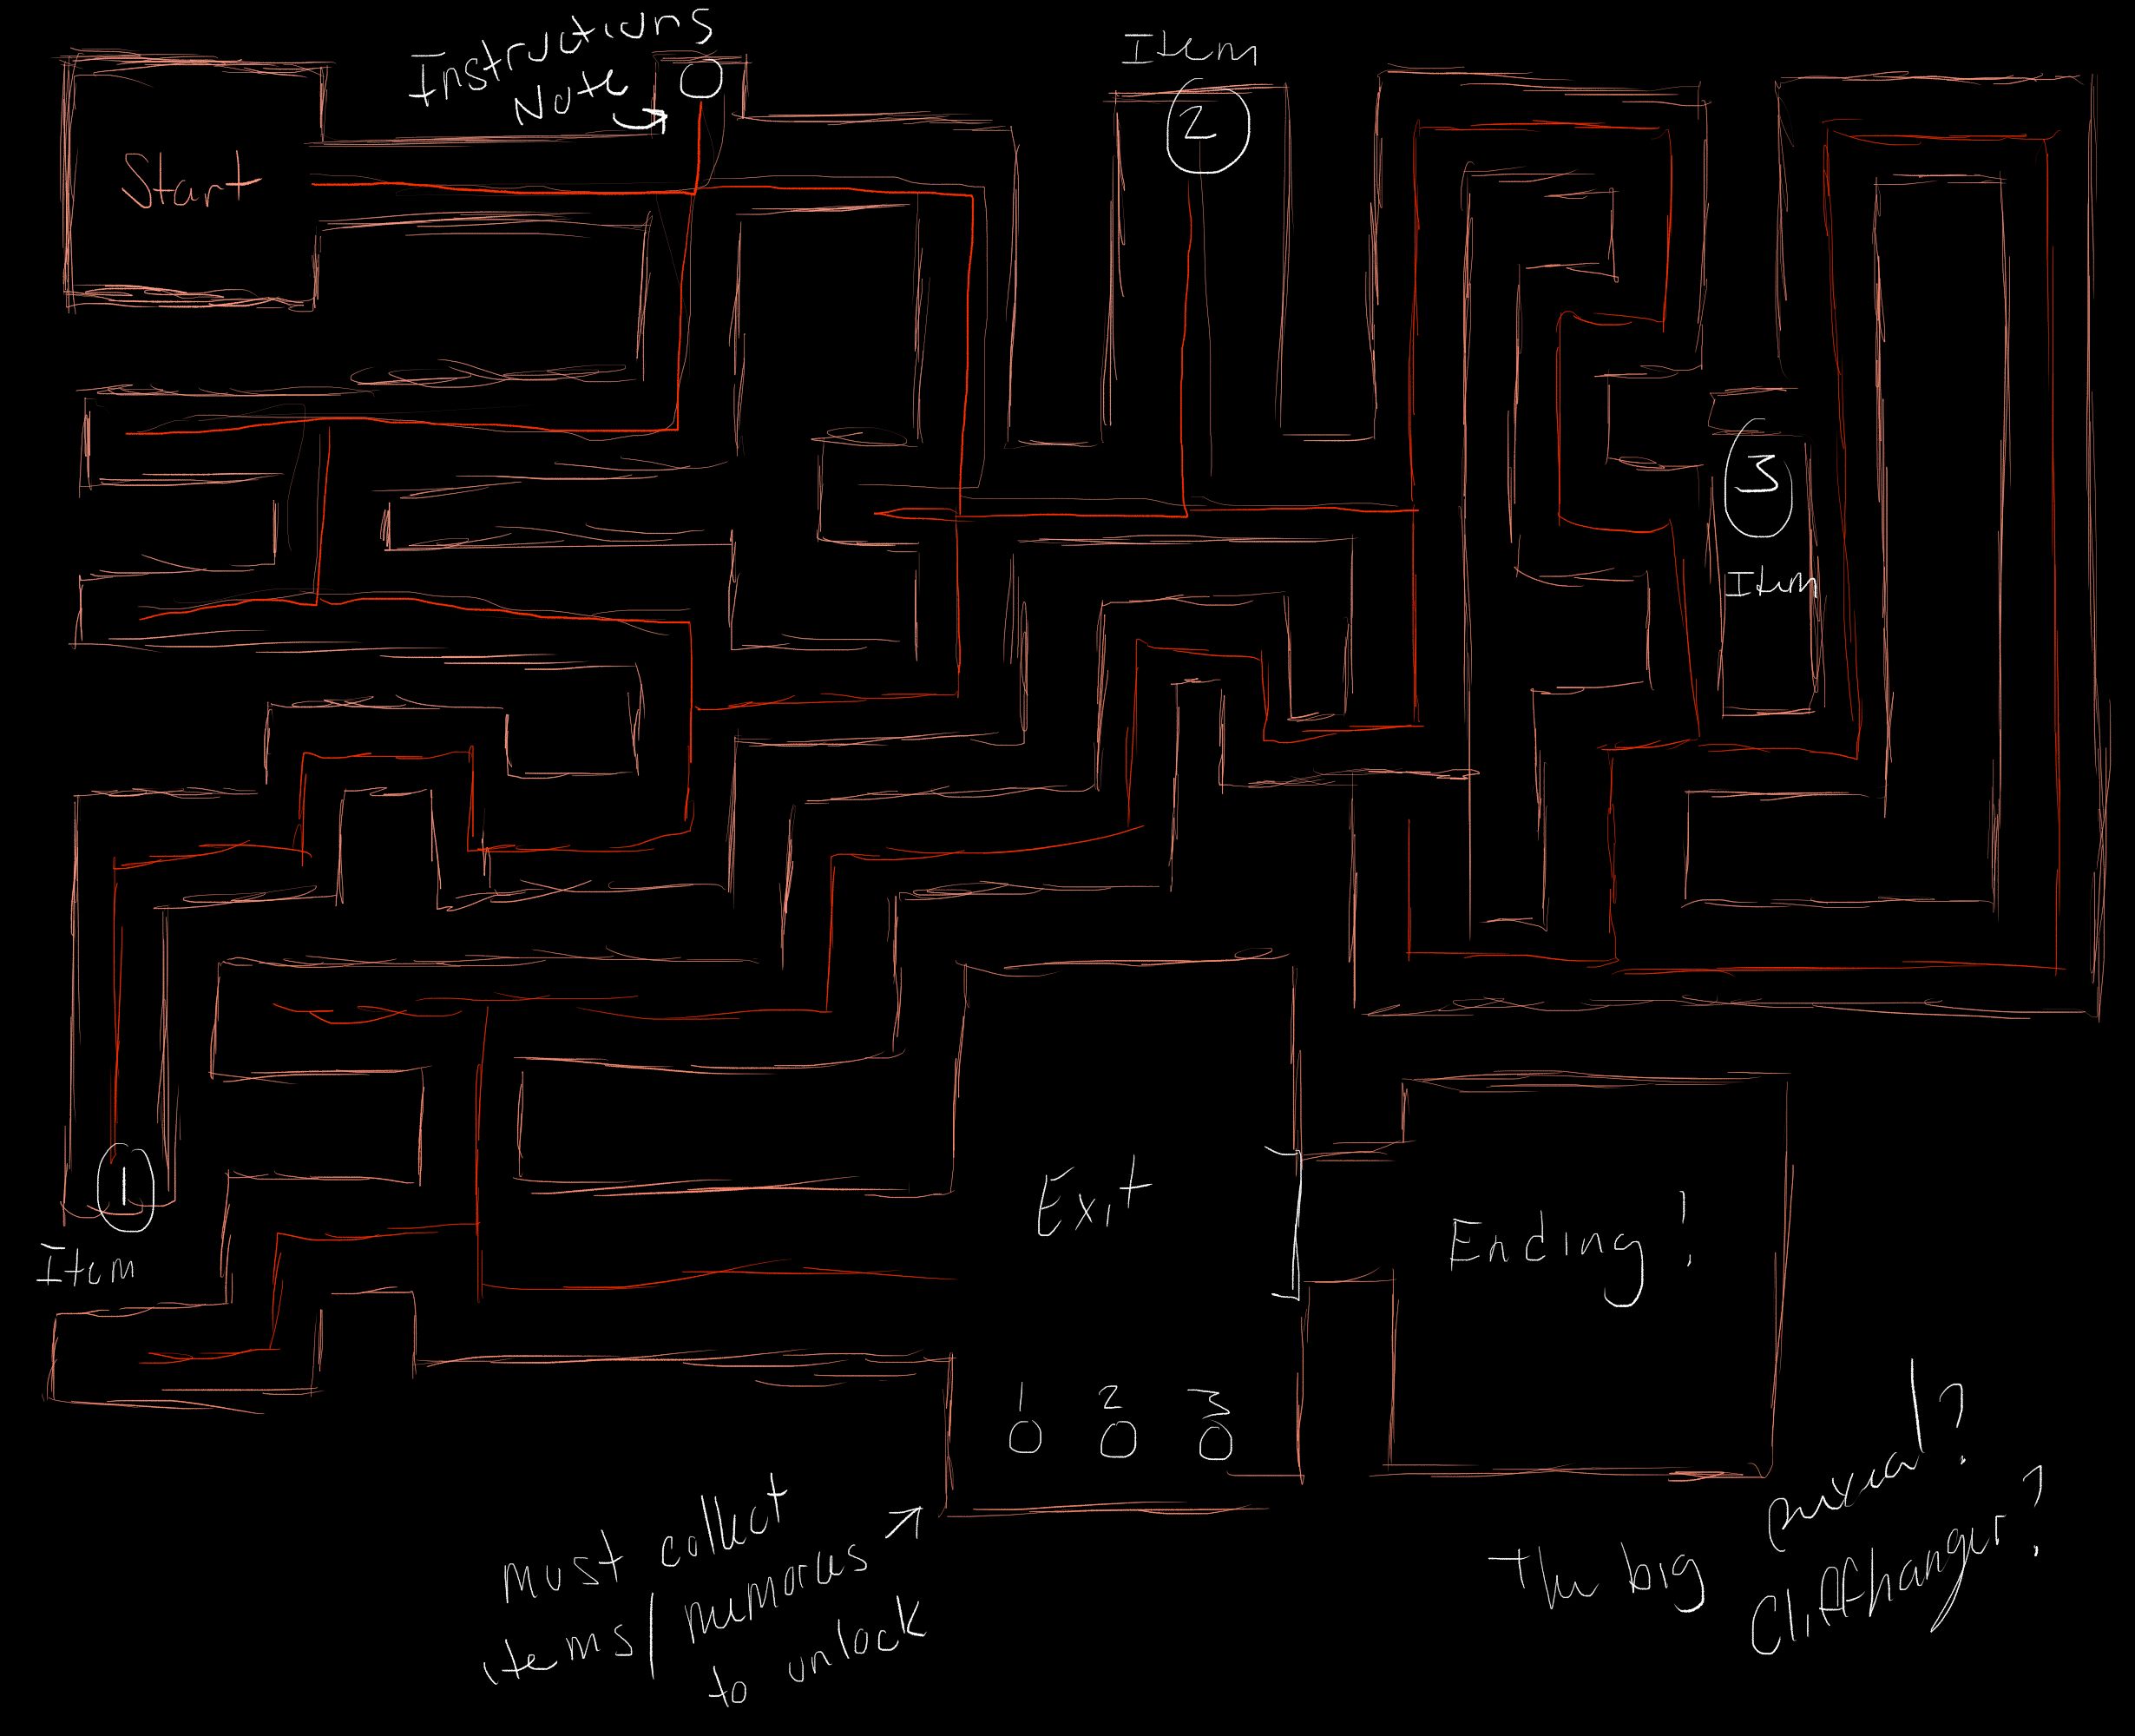 Instructions
Note
Item
2
Start
3
Item
1
Item
Exit
Ending!
1 2 3
must collect
items/memories
to unlock
The big reveal?
Cliffhanger?